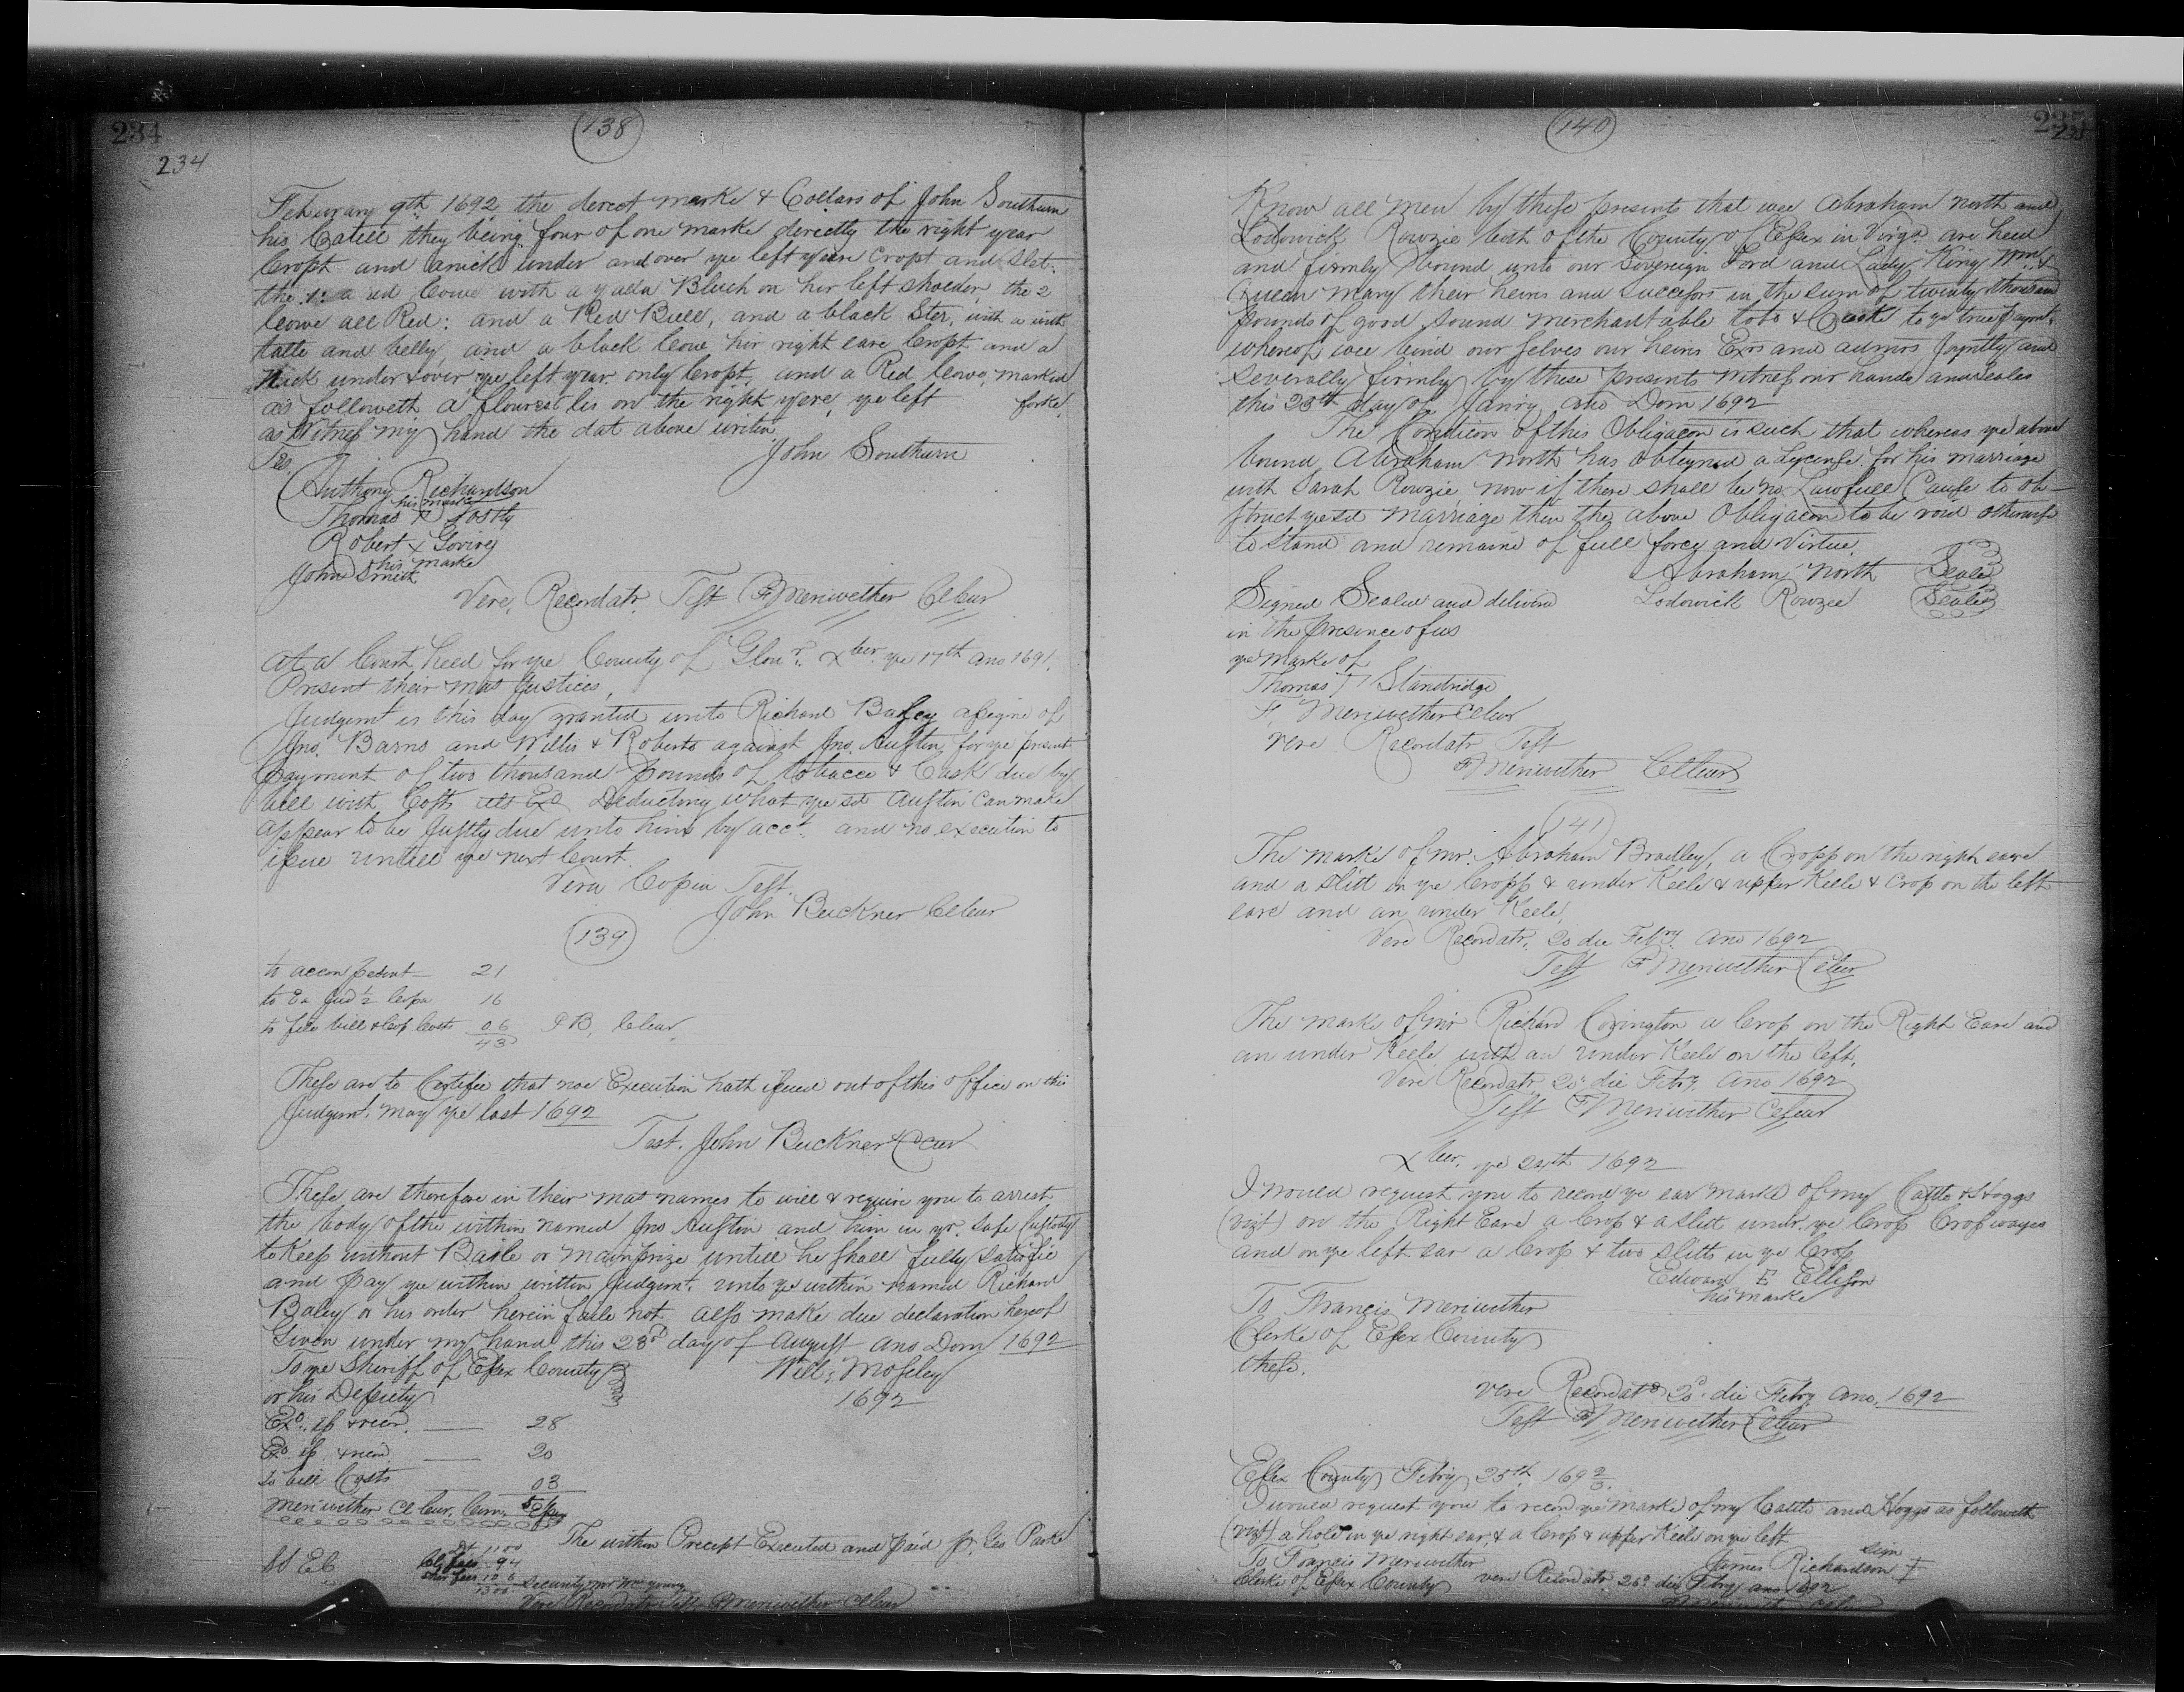 234
234
138
February 9th 1692 the derect marke & Collars of John Southurn
his Catell they being four of one marke derectly the right year
Cropt and a nick under and over ye left year Cropt and slet.
the 1: a red Cowe with a yalla Bluch on her left sholder, the 2
Cowe all Red: and a Red Bull, and a black Ster, with a
talle and belly and a black Cowe hir right eare Cropt and a
Nick under & over ye left year only Cropt, and a Red Cowe, marked
as followeth a flourest lis on the right yere, ye left forke,
as Witness my hand the dat above writen
John Southurn
Anthony Richardson
his marke
Thomas
Robert x
his marke
John Smith
Vere, Recordatr. Test F Meriwether Cl Cur
At a Court held for ye County of Glour. Xber ye 17th ano 1691.
Present their mas Justices,
Judgemt is this day granted unto Richard Baley assigne of
Jno. Barns and Willis & Roberts against Jno. Austin for ye present
payment of two thousand pounds of tobacco & Cask due by
bill with Costs als Exo Deducting what ye sd Austin can make
appear to be Justly due unto him by acct. and no execution to
issue untill ye next Court.
Vera Copia Test.
John Buckner Cl Cur
139
to accon 21
to Ea Judt Copa 16
to fees bill & Cop Costs 06 P B, Cl Cur
43
These are to Certifie that noe Execution hath issued out of this office on this
Judgmt. May ye last 1692
Test. John Buckner Cl Cur
These are therefore in their mas names to will & require you to arrest
the body of the within named Jno Austin and him in yr. safe Custody
to Keep without Baile or mainprize untill he shall fully satisfie
and pay ye within written Judgemt. unto ye within named Richard
Baley or his order herein faile not. also make due declaration hereof
Given under my hand this 23d day of August ano Dom 1692
To ye Sheriff of Essex County Will: Moseley
or his Depiety 1692
Exo. is & recor. 28
Exo is & recor 20
to bill Costs 03
Meriwether Cl Cur. Com.
The within Precept Executed and paid pr Geo Parke
1100
94
106
1300 security mr Wm young
Vere Recordatr Test F Meriwether Cl Cur
140
235
235
Know all men by these presents that wee Abraham North and
Lodowick Rowzie both of the County of Essex in Virga. are held
and firmly bound unto our Sovereign Lord and Lady King Wm &
Queen Mary their heirs and successors in the sum of twenty thousand
pounds of good sound merchantable tobo & Cask to ye true paymt.
whereof wee bind our selves our heirs Exrs and admrs Joyntly and
severally firmly by these presents Witness our hands and seales
this 28th day of Janry ano Dom 1692
The Condicon of this Obligacon is such that whereas ye above
bound Abraham North has obteyned a Lycense for his marriage
with Sarah Rowzie, now if there shall be no Lawfull Cause to ob-
struct ye sd marriage then the above Obligacon to be void otherwise
to stand and remaine of full force and Virtue.
Abraham North Seale
Signed Sealed and deliverd Lodowick Rowzee Seale
in the presence of us
ye marke of
Thomas T Standridge
F. Meriwether Cl Cur
Vere Recordatr Test
F Meriwether Cl Cur
141
The marke of mr. Abraham Bradley, a Cropp on the right eare
and a slitt in ye Cropp & under Keele & upper Keele & Crop on the left
eare and an under Keele,
Vere Recordatr. 20 die Febry. Ano 1692
Test F Meriwether Cl Cur
The marke of mr Richard Covington a Crop on the Right Eare and
an under Keele with an under Keele on the left.
Vere Recordatr 20 die Febry. Ano 1692
Test F Meriwether Cl Cur
Xber. ye 24th 1692
I would request you to record ye ear marke of my Cattle & Hoggs
(vizt) on the Right Eare a Crop & a slitt undr. ye Crop Cropwayes
and on ye left ear a Crop & two slitts in ye Crop
Edward E Ellison
his marke
To Francis Meriwether
Clerke of Essex County
these.
Vere Recordatr 20 die Febry Ano, 1692
Test F Meriwether Cl Cur
Essex County Febry 25th. 1692/3.
I would request you to record ye marke of my Cattle and Hoggs as followeth
(vizt) a hole in ye right ear, & a Crop & upper Keele on ye left
sign
To Francis Meriwether James Richardson
Clerke of Essex County Vere Recordatr. 25o die Febry ano 1692